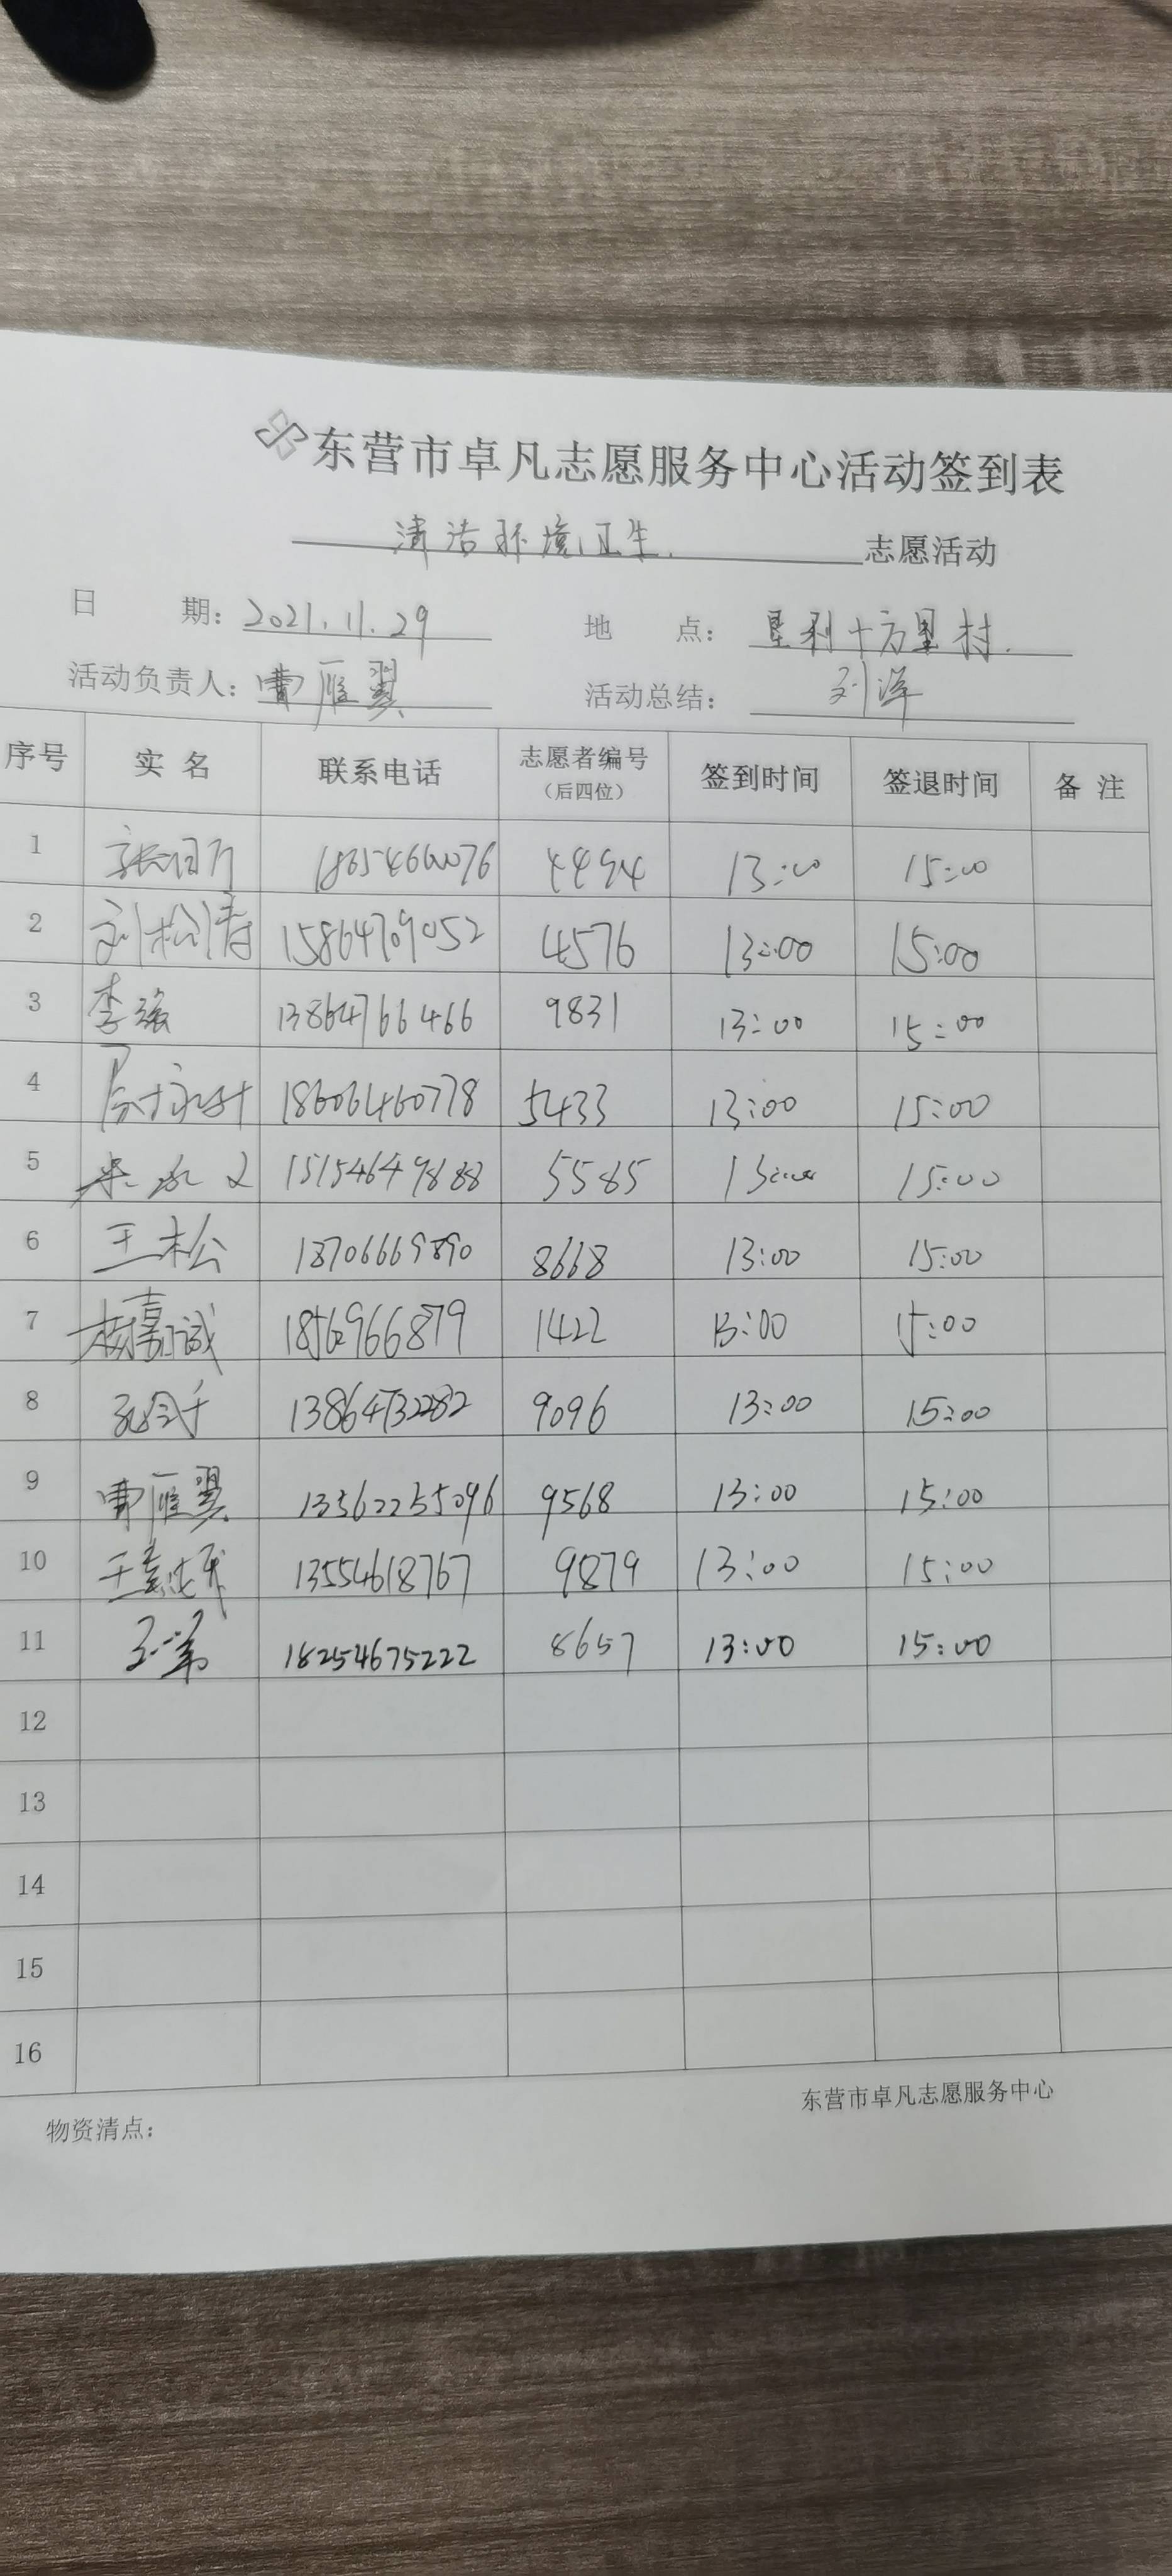 东营市卓凡志愿服务中心活动签到表
清洁环境卫生 志愿活动
日 期：2021.11.29 地 点：垦利十方里村.
活动负责人：曹雁翼 活动总结：刘洋
序号 实 名 联系电话 志愿者编号（后四位） 签到时间 签退时间 备 注
1 4494 13:00 15:00
2 刘松涛 15864709052 4576 13:00 15:00
3 李强 13864766466 9831 13:00 15:00
4 18606460778 5433 13:00 15:00
5 15154649888 5585 13:00 15:00
6 王松 18706669890 8668 13:00 15:00
7 嘉诚 1422 13:00 15:00
8 13864732282 9096 13:00 15:00
9 曹雁翼 13562255096 9568 13:00 15:00
10 13554618767 9879 13:00 15:00
11 18254675222 8657 13:00 15:00
12
13
14
15
16
物资清点： 东营市卓凡志愿服务中心